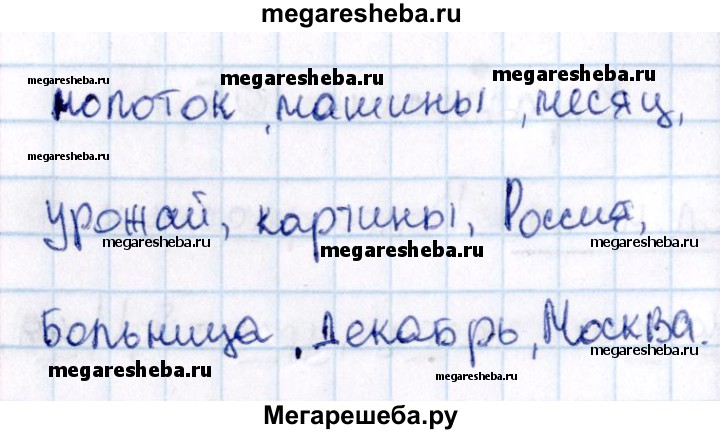 megaresheba.ru
megaresheba.ru megaresheba.ru megaresheba.ru
молоток, машины, месяц,
megaresheba.ru
урожай, картины, Россия,
megaresheba.ru megaresheba.ru megaresheba.ru
Больница, декабрь, Москва.
megaresheba.ru megaresheba.ru megaresheba.ru
Мегарешеба.ру